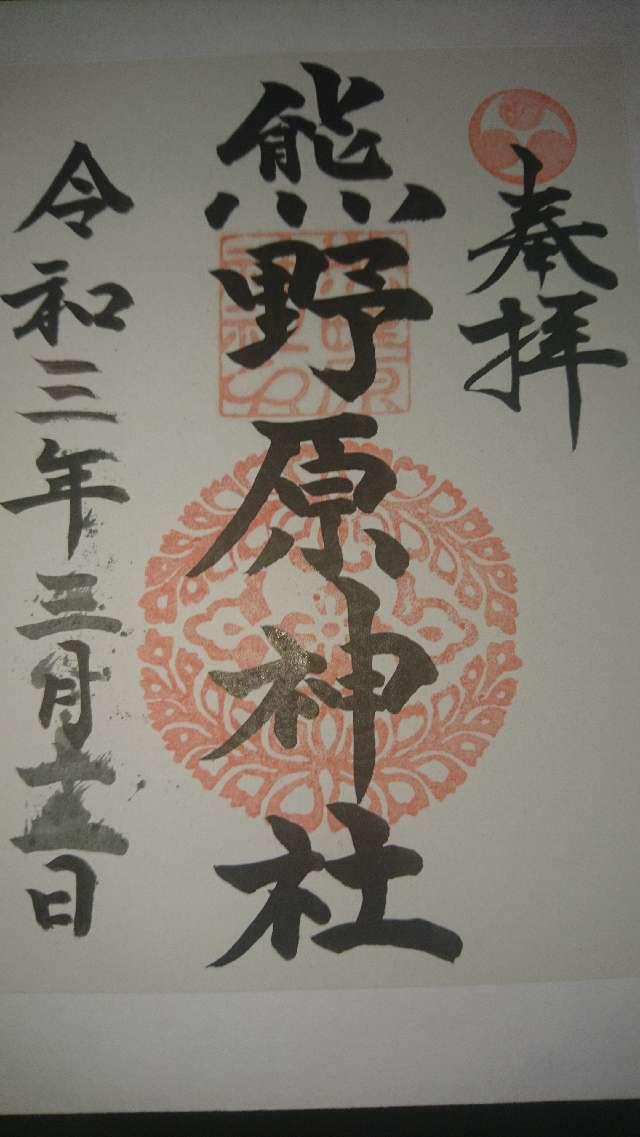 奉拝
熊野原神社
令和三年三月十二日